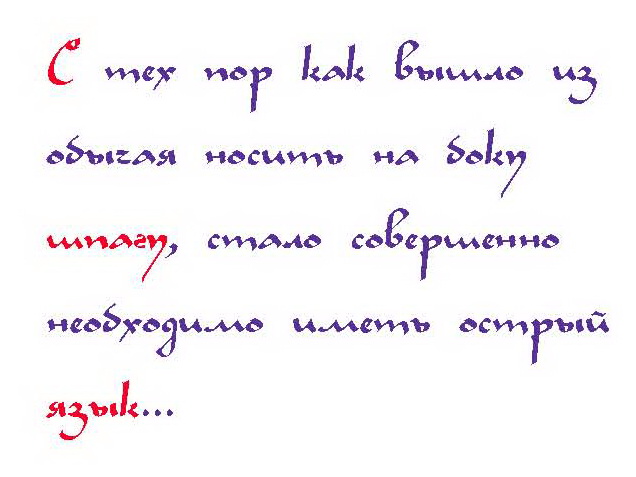 С тех пор как вышло из
обычая носить на боку
шпагу, стало совершенно
необходимо иметь острый
язык...